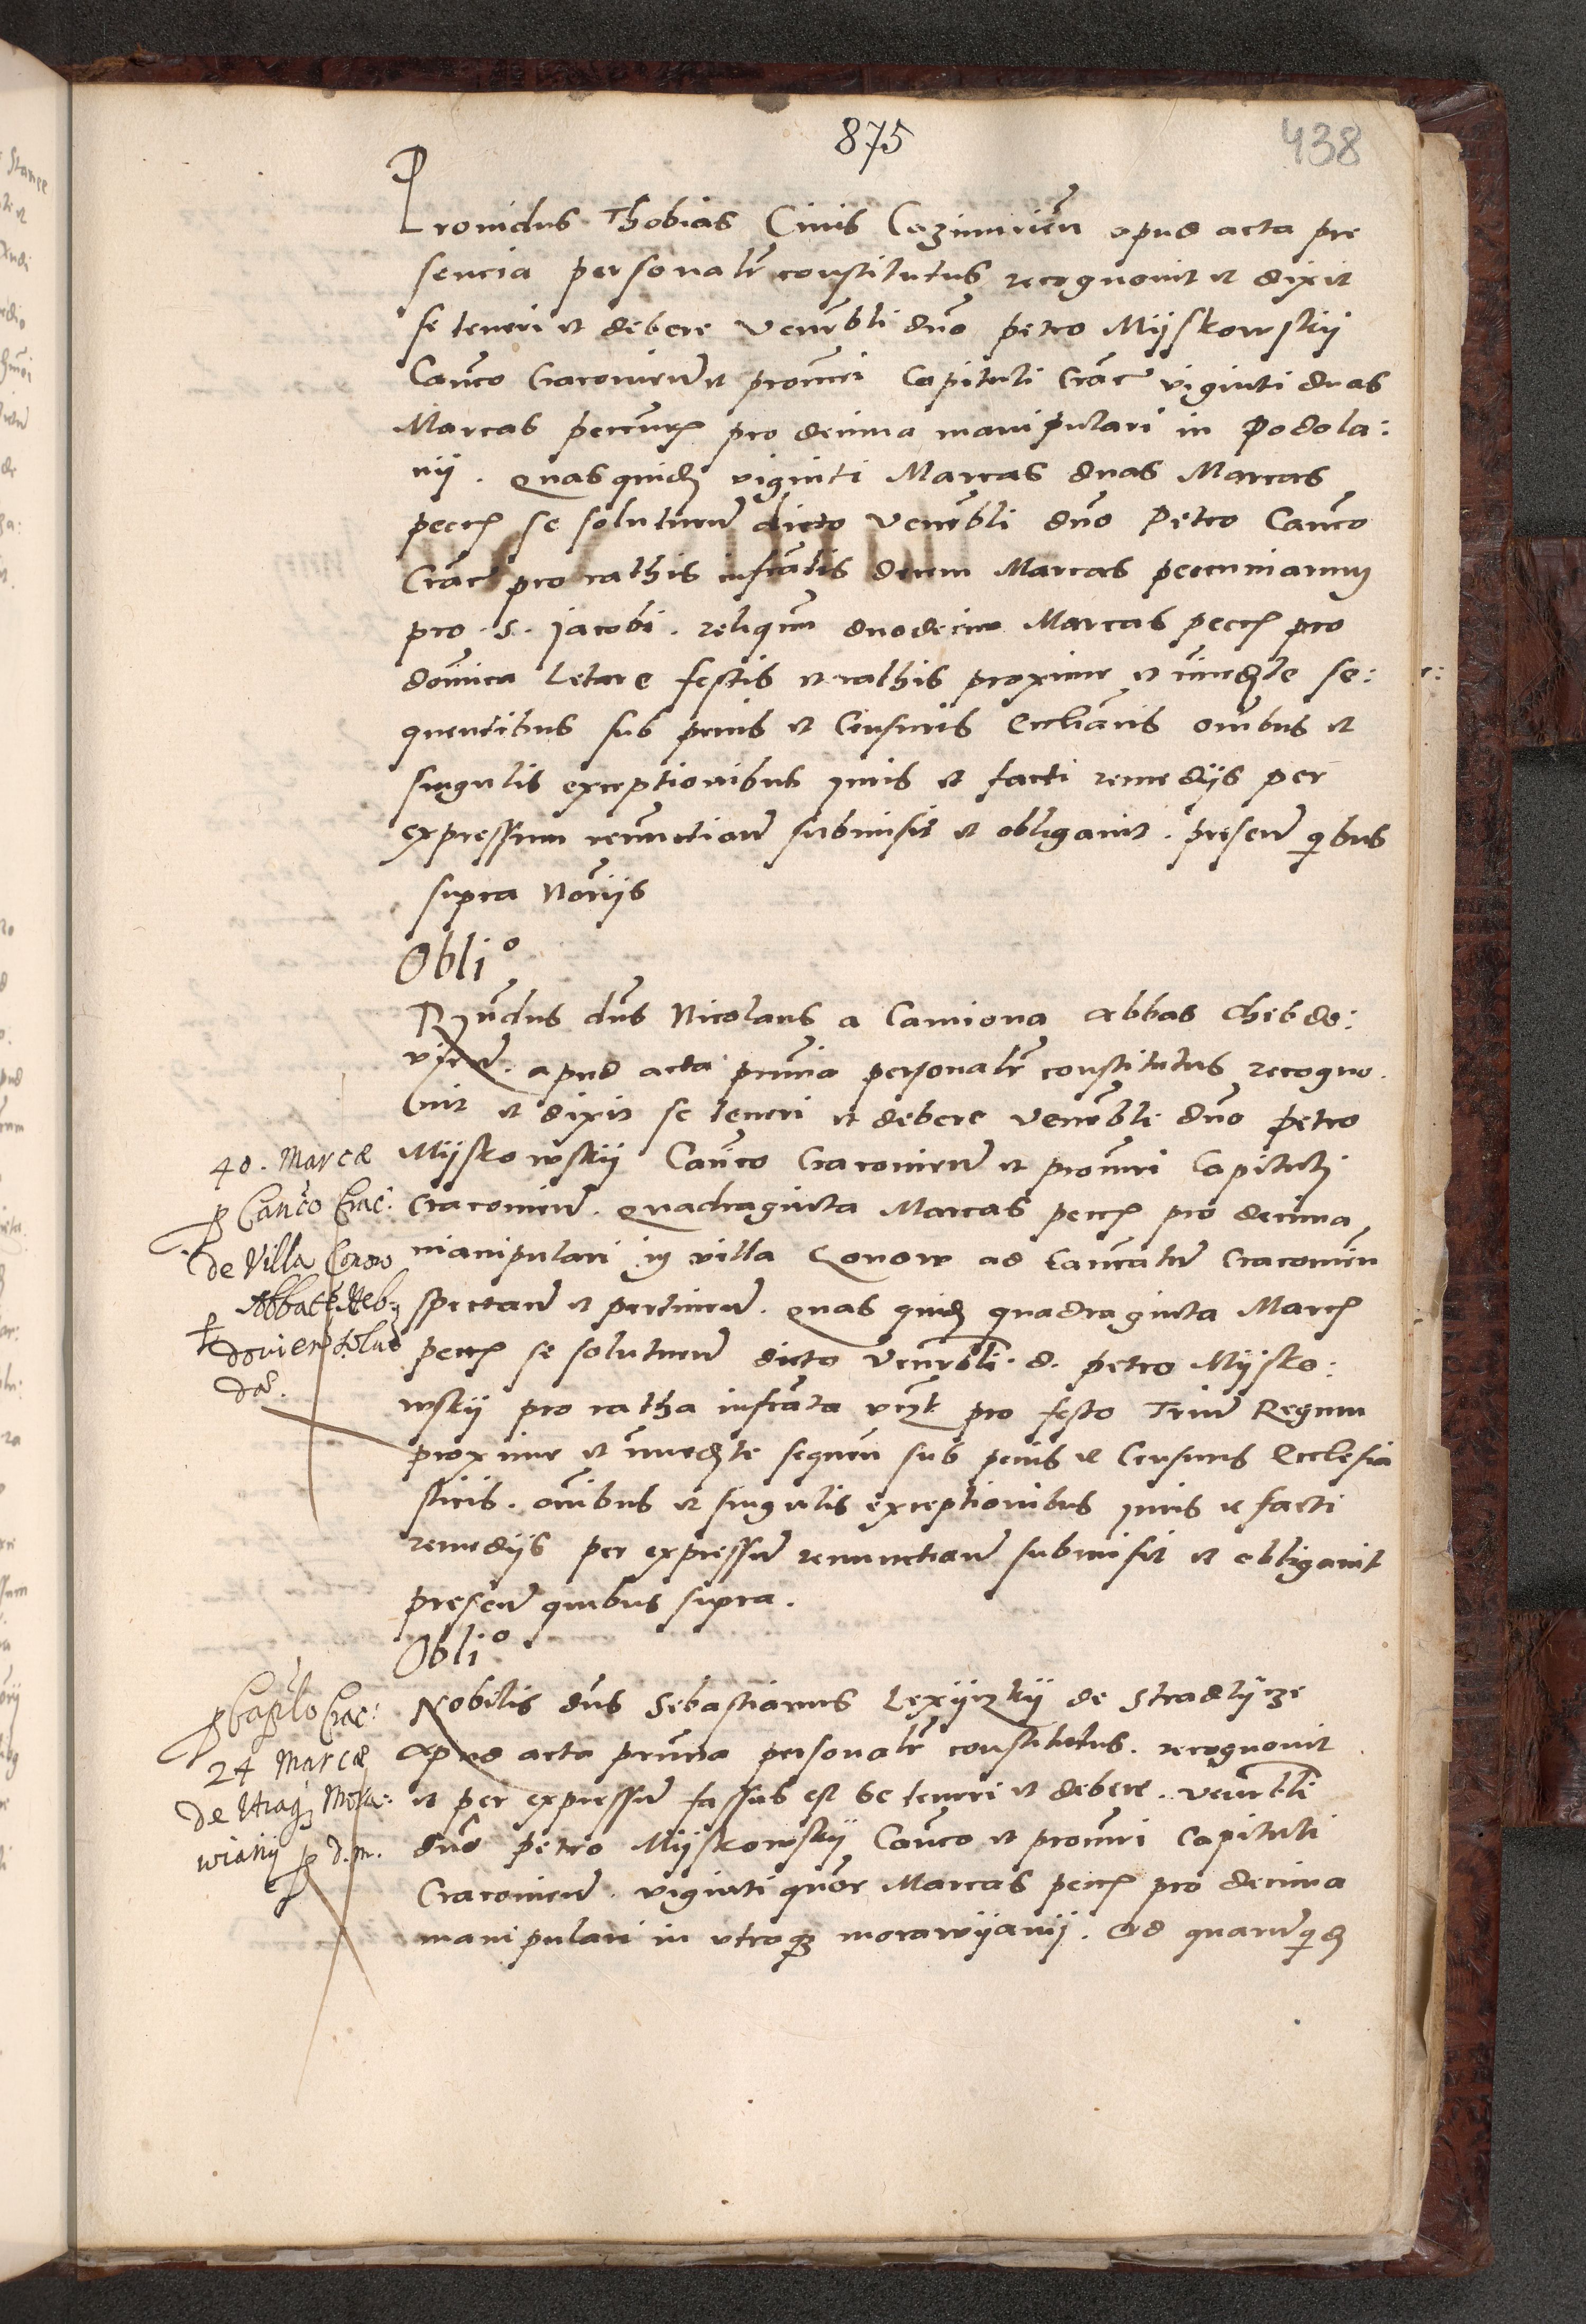 875
438
Prouidus Thobias Ciuis Cazimirien̄ apud acta pre
sencia personalr̄ constitutus recognouit et dixit
se teneri et debere Venerbli dn̄o petro Myskowskij
Can̄co Cracouien̄ et procūri Capituli Crac̄ viginti duas
Marcas peccun̄ pro decima manipulari in Podola:
nij. Quasquid viginti Marcas duas Marcas
pecc̄ se soluturum dicto Venerbli dn̄o Petro Can̄co
Crac̄ pro rathis infrātis decem Marcas peccuniarum
pro .S. Jacobi. reliquū duodecim Marcas pecc̄ pro
dōmica letare festis et rathis proxime et immedte se:
quentibus sub penis et Censuris Eccliāris omībus et
singulis exceptionibus Juris et facti remedijs per
expressum renunctiaō submisit et obligauit. presen̄ qbus
supra Norijs
Obli°
Rn̄dus dn̄s Nicolaus a Camiona Abbas Chebdo:
uien̄. apud acta prn̄cia personalr̄ constitutus recogno.
uit et dixit se teneri et debere Venerble dn̄o petro
Myskowskij Can̄co Cracouien̄ et procūri Capituli
Cracouien̄. Quadraginta Marcas pecc̄ pro decima
manipulari in villa Conow ad Can̄catū Cracouien̄
spectan̄ et pertinen̄. Quas quid quadraginta Marc̄
pecc̄ se soluturum dicto Venerbli. d. petro Mysko:
wskij pro ratha infrāta vīzt pro festo Trium Regum
proxime et immedte sequen̄ sub penis et Censuris Ecclesia
sticis. omībus et singulis exceptionibus Juris et facti
remedijs per expressum renunctiaō submisit et obligauit
presen̄ quibus supra.
40. Marcæ
p Can̄co Crac:
de Villa Conow
p Abbatē Heb:
douien̄ solue
dæ.
Obli°
Nobilis dn̄s Sebastianus Lexyczkij de Stradlycze
Apud acta prn̄cia personalr̄ constitutus. recognouit
et per expressum fassus est se teneri et debere. venerbli
dn̄o petro Myskowskij Can̄co et procūri Capituli
Cracouien̄. viginti quor Marcas pecc̄ pro decima
manipulari in vtroq3 morawyanij. Ad quarum qd
p Caplo Crac:
24 Marcæ
de Utraq3 Mora:
wianij p d.n.